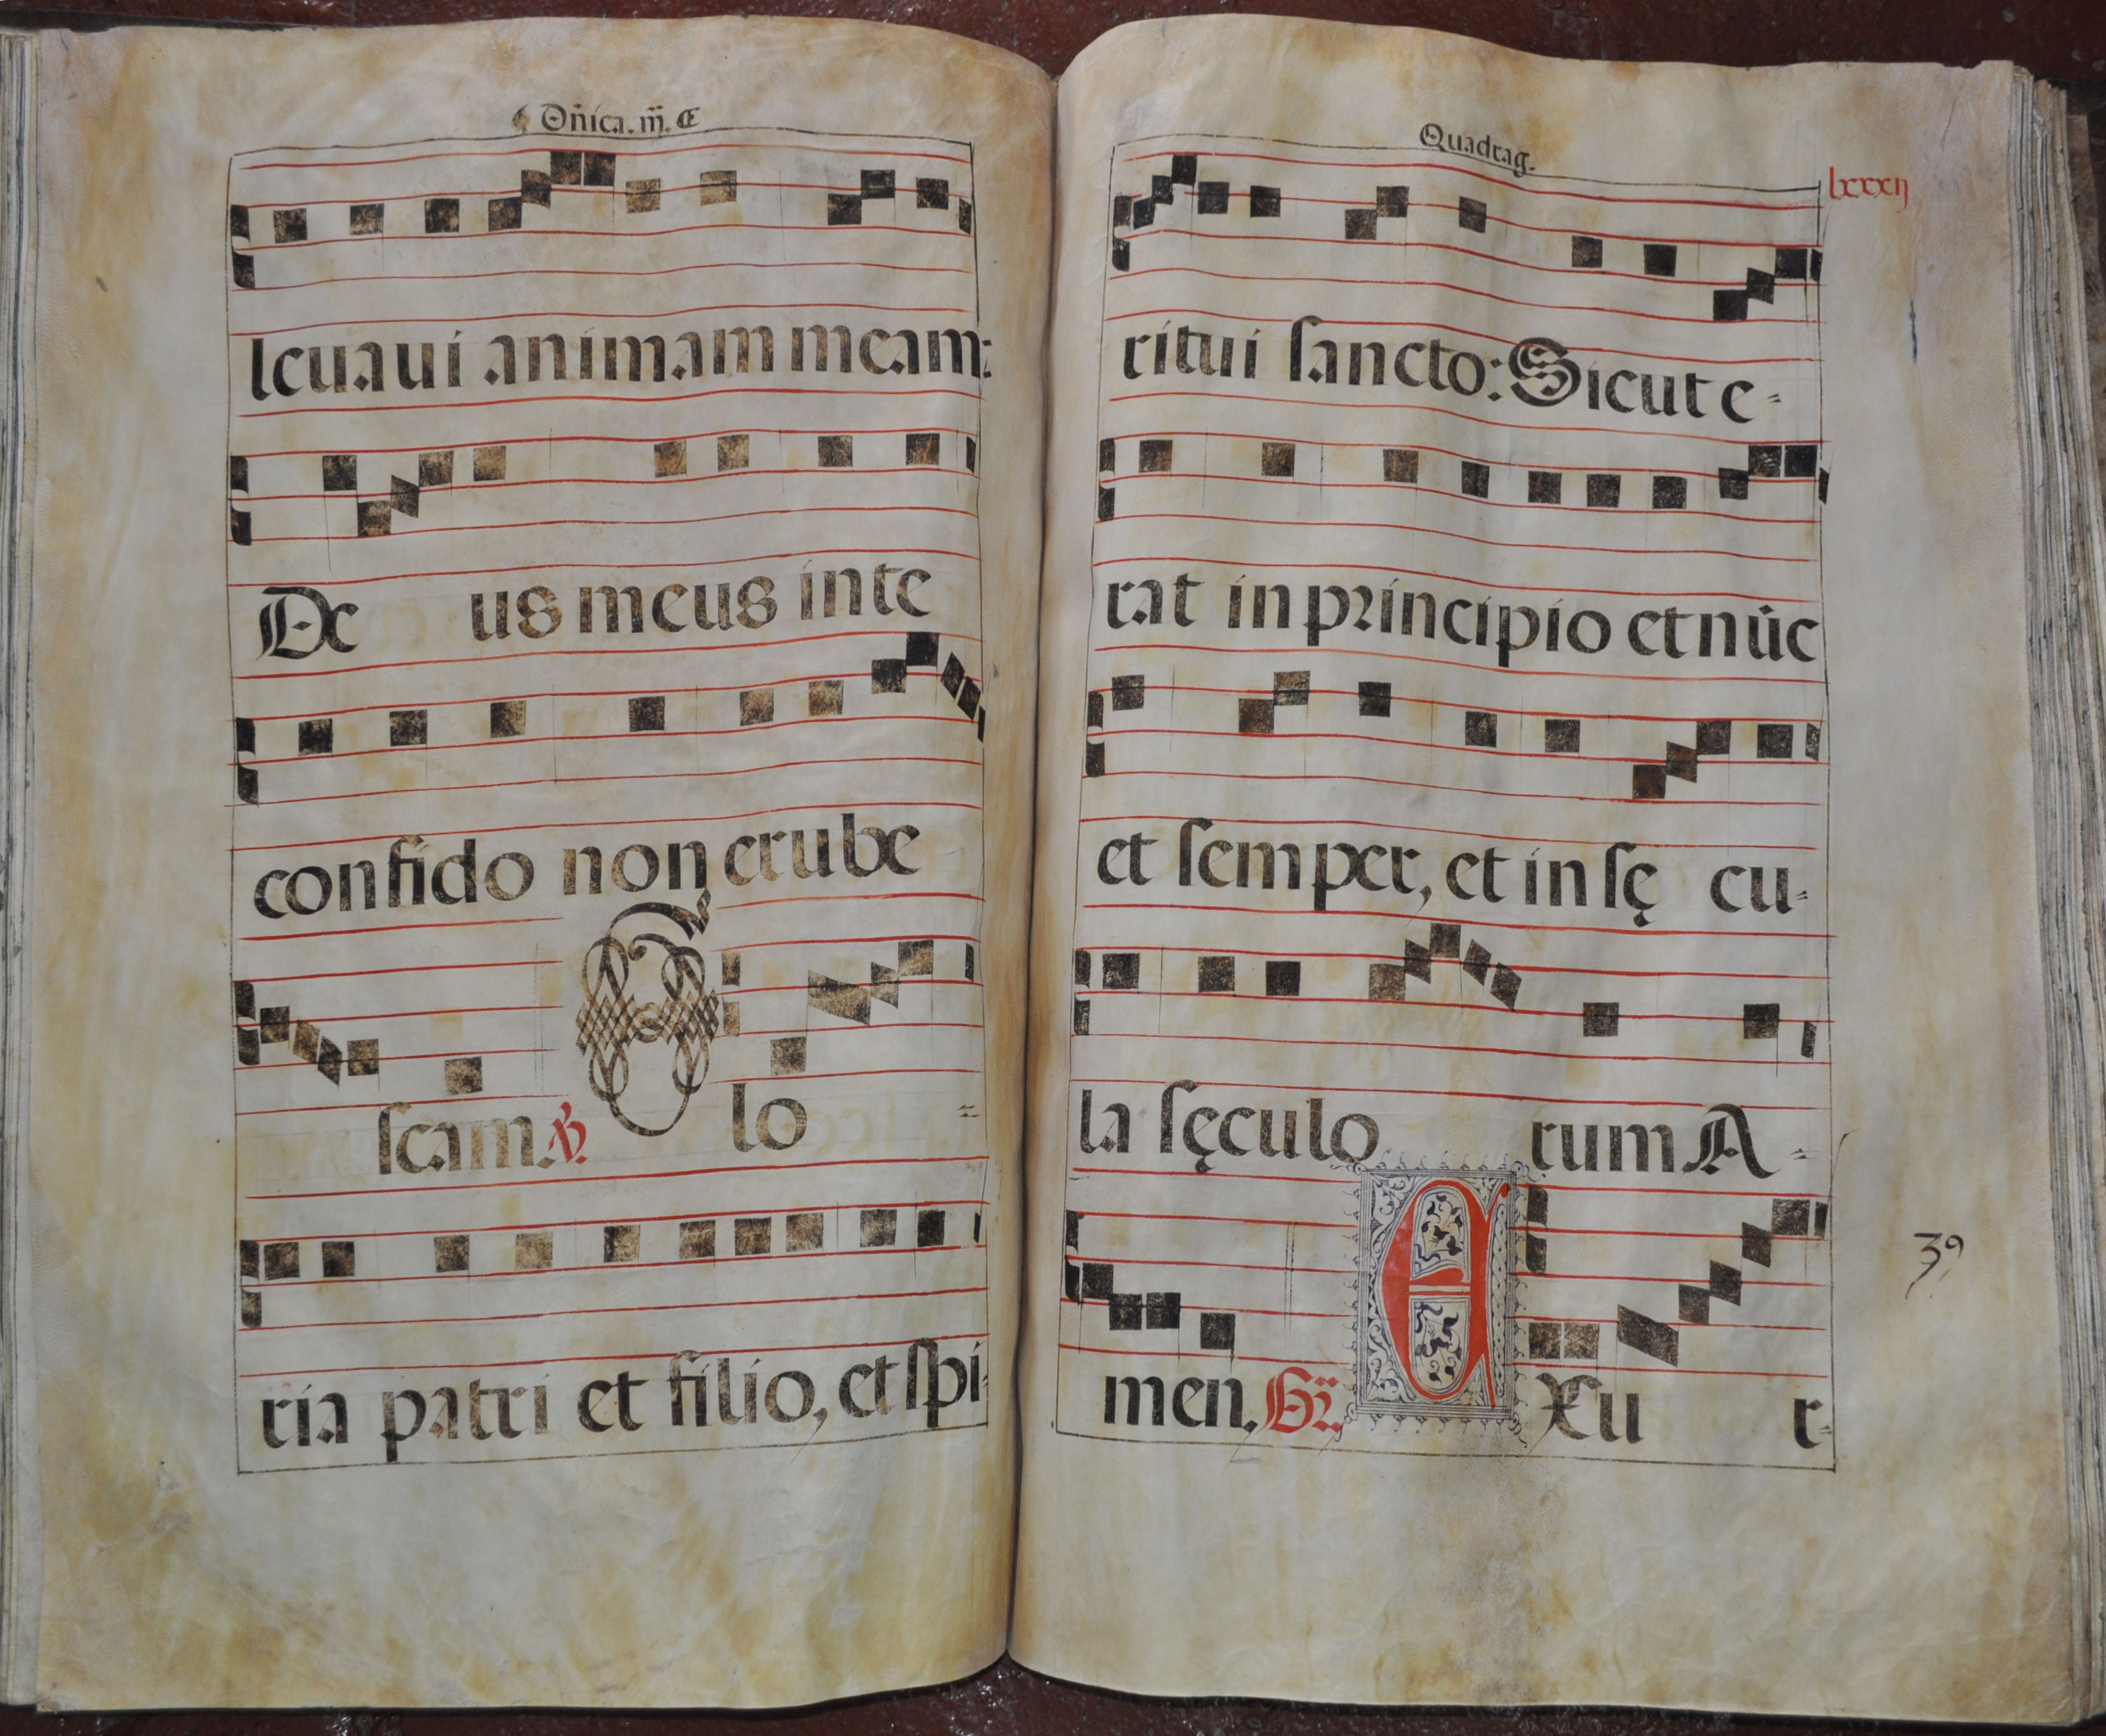 Dñica. iij. Œ
leuaui animam meam:
De us meus in te
confido non erube
scam. ℣. Glo =
ria patri et filio, et spi-
Quadrag.
lxxxij
ritui sancto: Sicut e-
rat in principio et nūc
et semper, et in sę cu-
la sęculo rum A-
men. Gr. EXu r-
39